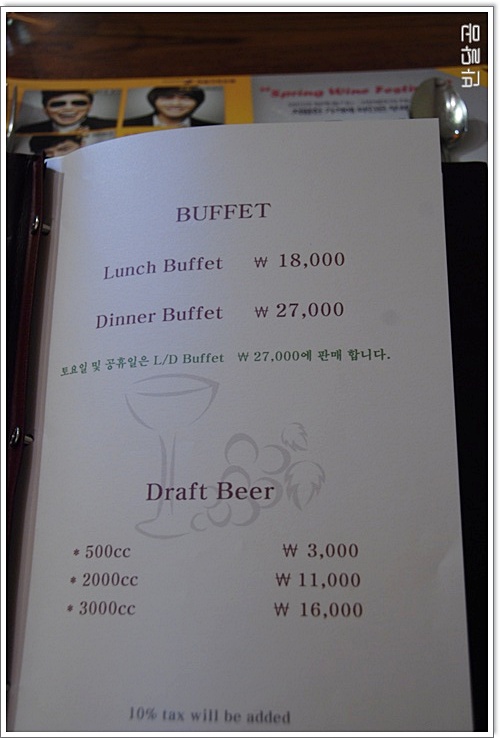 반달곰
"Spring Wine Festi
BUFFET
Lunch Buffet ₩ 18,000
Dinner Buffet ₩ 27,000
토요일 및 공휴일은 L/D Buffet ₩ 27,000에 판매 합니다.
Draft Beer
* 500cc ₩ 3,000
* 2000cc ₩ 11,000
* 3000cc ₩ 16,000
10% tax will be added